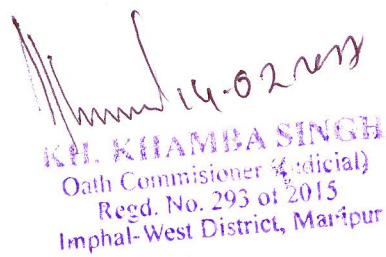 14-02
KH. KHAMBA SINGH
Oath Commisioner (Judicial)
Regd. No. 293 of 2015
Imphal-West District, Manipur